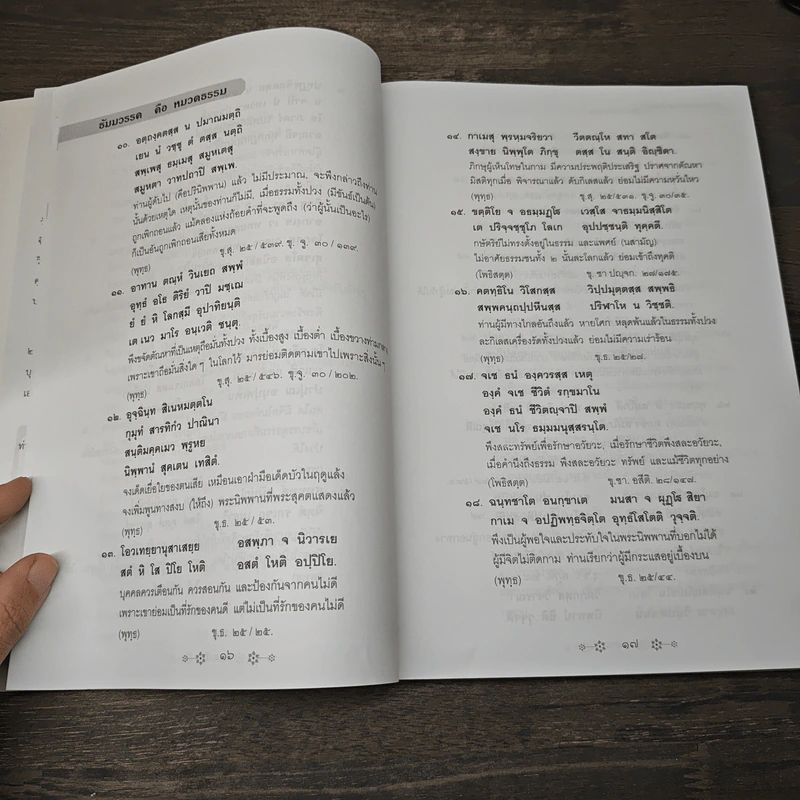 ธัมมวรรค คือ หมวดธรรม
๑๐. อตฺถงฺคตสฺส น ปมาณมตฺถิ
เยน นํ วชฺชุ ตํ ตสฺส นตฺถิ
สพฺเพสุ ธมฺเมสุ สมูหเตสุ
สมูหตา วาทปถาปิ สพฺเพ.
ท่านผู้ดับไป (คือปรินิพพาน) แล้ว ไม่มีประมาณ, จะพึงกล่าวถึงท่าน
นั้นด้วยเหตุใด เหตุนั้นของท่านก็ไม่มี, เมื่อธรรมทั้งปวง (มีขันธ์เป็นต้น)
ถูกเพิกถอนแล้ว แม้คลองแห่งถ้อยคำที่จะพูดถึง (ว่าผู้นั้นเป็นอะไร)
ก็เป็นอันถูกเพิกถอนเสียทั้งหมด
(พุทฺธ) ขุ.สุ. ๒๕ / ๕๓๙. ขุ. จู. ๓๐ / ๑๓๙.
๑๑. อาทาน ตณฺหํ วินเยถ สพฺพํ
อุทฺธํ อโธ ติริยํ วาปิ มชฺเฌ
ยํ ยํ หิ โลกสฺมึ อุปาทิยนฺติ
เต เนว มาโร อนฺเวติ ชนฺตุํ.
พึงขจัดตัณหาที่เป็นเหตุถือมั่นทั้งปวง ทั้งเบื้องสูง เบื้องต่ำ เบื้องขวาง
เพราะเขาถือมั่นสิ่งใด ๆ ในโลกไว้ มารย่อมติดตามเขาไปเพราะสิ่งนั้น ๆ
(พุทฺธ) ขุ.สุ. ๒๕ / ๕๔๖. ขุ.จู. ๓๐ / ๒๐๒.
๑๒. อุจฺฉินฺท สิเนหมตฺตโน
กุมุทํ สารทิกํว ปาณินา
สนฺติมคฺคเมว พฺรูหย
นิพฺพานํ สุคเตน เทสิตํ.
จงเด็ดเยื่อใยของตนเสีย เหมือนเอาฝ่ามือเด็ดบัวในฤดูแล้ง
จงเพิ่มพูนทางสงบ (ให้ถึง) พระนิพพานที่พระสุคตแสดงแล้ว
(พุทฺธ) ขุ.ธ. ๒๕ / ๕๓.
๑๓. โอวเทยฺยานุสาเสยฺย อสพฺภา จ นิวารเย
สตํ หิ โส ปิโย โหติ อสตํ โหติ อปฺปิโย.
บุคคลควรเตือนกัน ควรสอนกัน และป้องกันจากคนไม่ดี
เพราะเขาย่อมเป็นที่รักของคนดี แต่ไม่เป็นที่รักของคนไม่ดี
(พุทฺธ) ขุ.ธ. ๒๕ / ๒๕.
๑๖
๑๔. กาเมสุ พฺรหฺมจริยวา วีตตณฺโห สทา สโต
สงฺขาย นิพฺพุโต ภิกฺขุ ตสฺส โน สนฺติ อิญฺชิตา.
ภิกษุผู้เห็นโทษในกาม มีความประพฤติประเสริฐ ปราศจากตัณหา
มีสติทุกเมื่อ พิจารณาแล้ว ดับกิเลสแล้ว ย่อมไม่มีความหวั่นไหว
(พุทฺธ) ขุ.สุ. ๒๕/๕๓๑. ขุ.จู. ๓๐/๓๕.
๑๕. ขตฺติโย จ อธมฺมฏฺโฐ เวสฺโส จาธมฺมนิสฺสิโต
เต ปริจฺจชฺชุโภ โลเก อุปปชฺชนฺติ ทุคฺคตึ.
กษัตริย์ไม่ทรงตั้งอยู่ในธรรม และแพศย์ (นสามัญ)
ไม่อาศัยธรรมชนทั้ง ๒ นั้นละโลกแล้ว ย่อมเข้าถึงทุคติ
(โพธิสตฺต) ขุ. ชา ปญฺจก. ๒๗/๑๗๕.
๑๖. คตทฺธิโน วิโสกสฺส วิปฺปมุตฺตสฺส สพฺพธิ
สพฺพคนฺถปฺปหีนสฺส ปริฬาโห น วิชฺชติ.
ท่านผู้มีทางไกลอันถึงแล้ว หายโศก หลุดพ้นแล้วในธรรมทั้งปวง
ละกิเลสเครื่องรัดทั้งปวงแล้ว ย่อมไม่มีความเร่าร้อน
(พุทฺธ) ขุ.ธ. ๒๕/๒๗.
๑๗. จเช ธนํ องฺควรสฺส เหตุ
องฺคํ จเช ชีวิตํ รกฺขมาโน
องฺคํ ธนํ ชีวิตญฺจาปิ สพฺพํ
จเช นโร ธมฺมมนุสฺสรนฺโต.
พึงสละทรัพย์เพื่อรักษาอวัยวะ, เมื่อรักษาชีวิตพึงสละอวัยวะ,
เมื่อคำนึงถึงธรรม พึงสละอวัยวะ ทรัพย์ และแม้ชีวิตทุกอย่าง
(โพธิสตฺต) ขุ.ชา. อสีติ. ๒๘/๑๔๗.
๑๘. ฉนฺทชาโต อนกฺขาเต มนสา จ ผุฏฺโฐ สิยา
กาเม จ อปฏิพทฺธจิตฺโต อุทฺธํโสโตติ วุจฺจติ.
พึงเป็นผู้พอใจและประทับใจในพระนิพพานที่บอกไม่ได้
ผู้มีจิตไม่ติดกาม ท่านเรียกว่าผู้มีกระแสอยู่เบื้องบน
(พุทฺธ) ขุ.ธ. ๒๕/๔๔.
๑๗